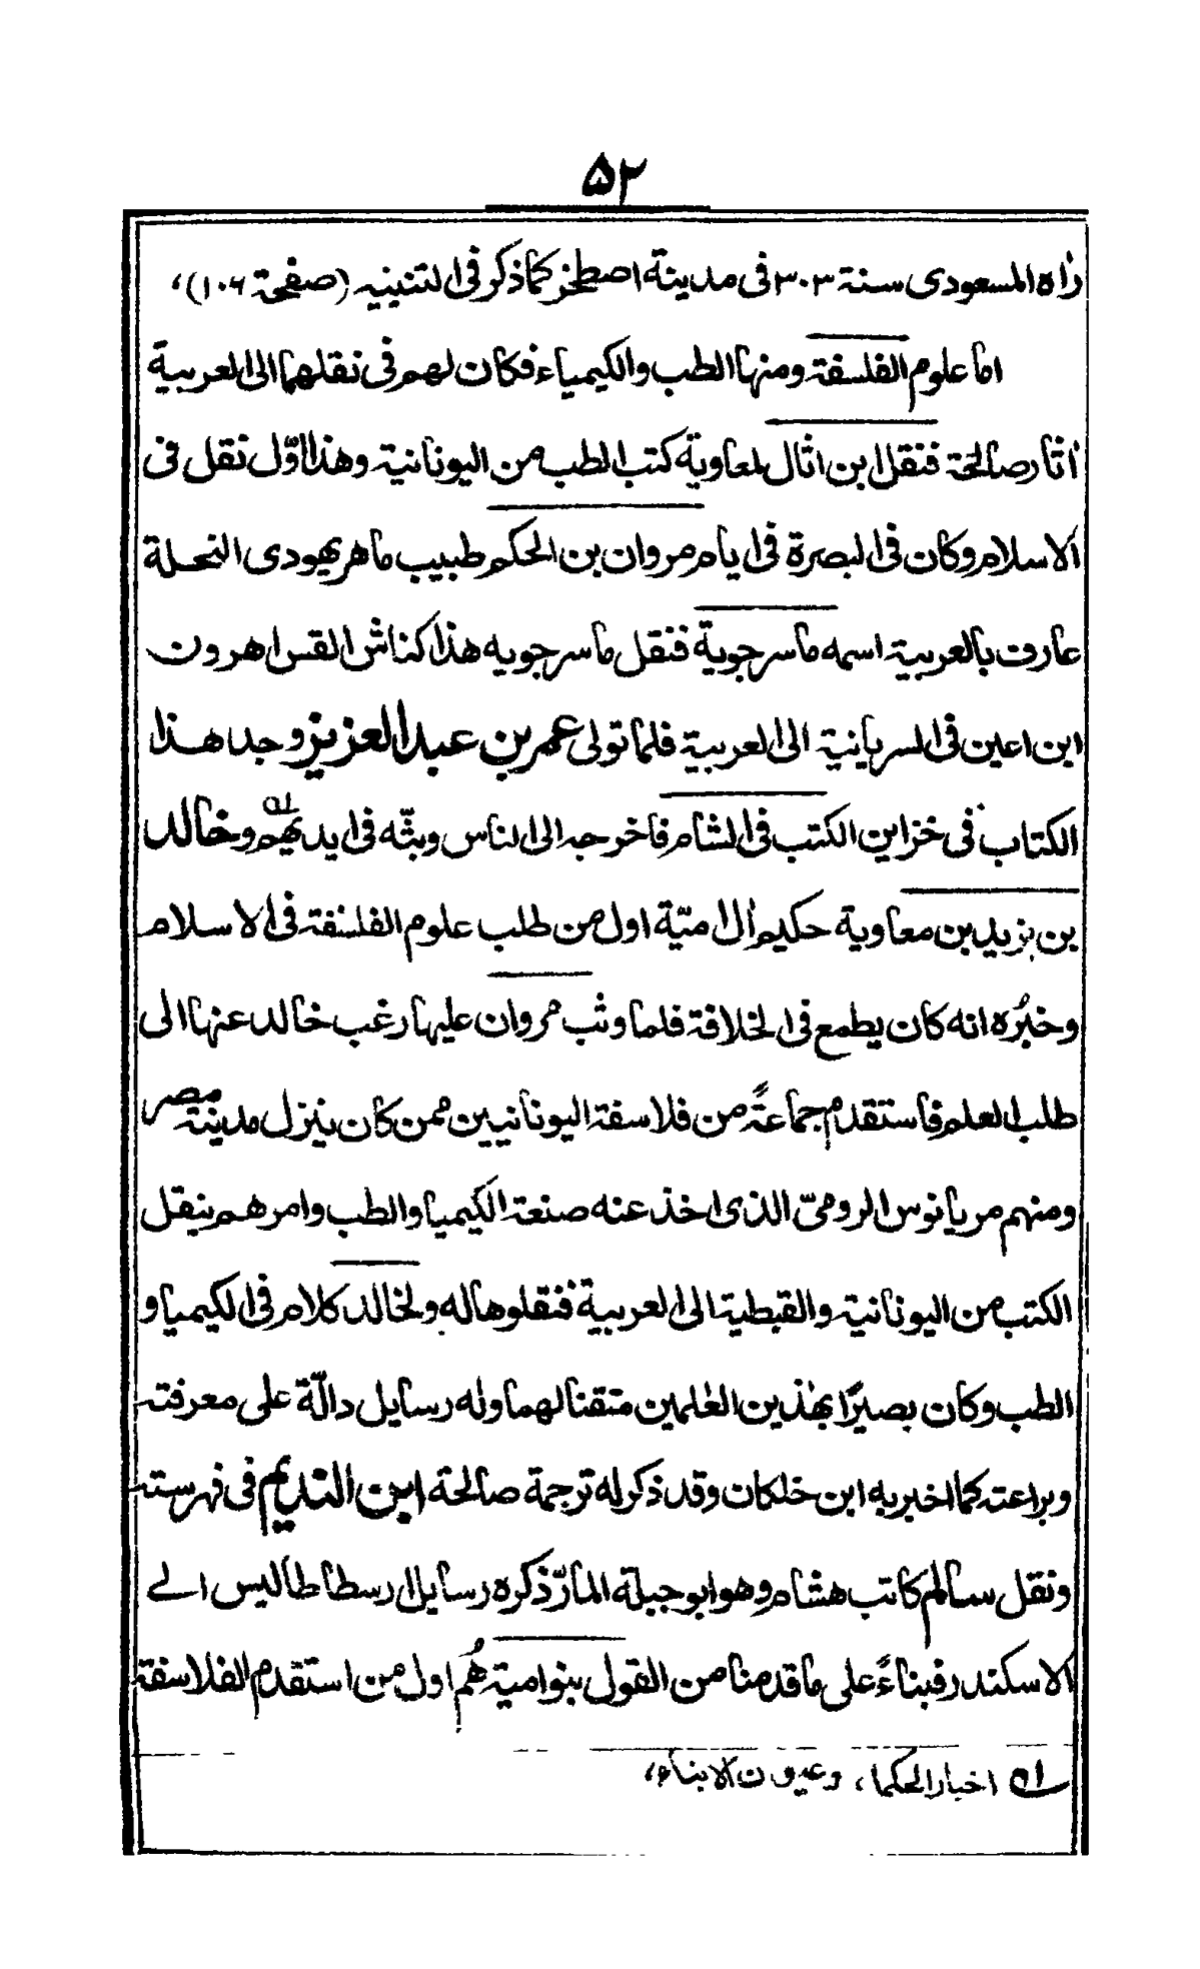 ۵۲
رأه المسعودى سنة ۳۰۳ فى مدينة اصطخر كما ذكر فى التنبيه (صفحة ۱۰۶)،
اما علوم الفلسفة ومنها الطب والكيمياء فكان لهم فى نقلهما الى العربية
أثار صالحة فنقل ابن اثال لمعاوية كتب الطب من اليونانية وهذا اوّل نقل فى
الاسلام وكان فى البصرة فى ايام مروان بن الحكم طبيب ماهر يهودى النحلة
عارف بالعربية اسمه ماسرجوية فنقل ماسرجويه هذا كناش القس اهرون
ابن اعين فى السريانية الى العربية فلما تولى عمر بن عبد العزيز وجد هذا
الكتاب فى خزاين الكتب فى الشام فاخرجه الى الناس وبثّه فى ايديهم ؎۱ه وخالد
بن يزيد بن معاوية حكيم أل امیّة اول من طلب علوم الفلسفة فى الاسلام
وخبُره انه كان يطمع فى الخلافة فلما وثب مروان عليها رغب خالد عنها الى
طلب العلم فاستقدم جماعةً من فلاسفة اليونانيين ممن كان ينزل مدينة مصر
ومنهم مريانوس الرومىّ الذى اخذ عنه صنعة الكيميا والطب وامرهم بنقل
الكتب من اليونانية والقبطية الى العربية فنقلوها له ولخالد كلام فى الكيميا و
الطب وكان بصيرًا بهٰذين العٰلمين متقنا لهما وله رسايل دالّة على معرفته
وبراعته كما اخبر به ابن خلكان وقد ذكر له ترجمة صالحة ابن النديم فى فهرسته
ونقل سالم كاتب هشام وهو ابو جبلة المارّ ذكره رسايل ارسطاطاليس الے
الاسكندر فبناءً على ما قدمنا من القول بنوامية هُم اول من استقدم الفلاسفة
؎۱ه اخبار الحكما، وعيون الانباء،